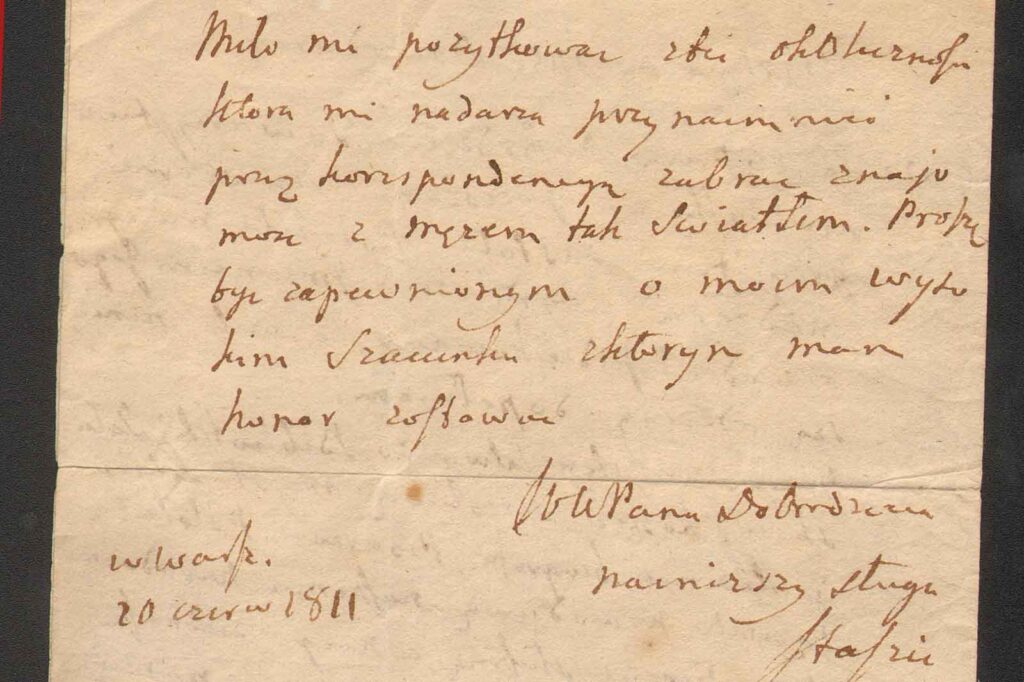 Miło mi pożytkować z tei okoliczności
która mi nadarza przynaimniéi
przez korrespondencyą zabrać znajo
mość z mężem tak Swiatłym. Proszę
być zapewnionym o moim wyso
kim Szacunku z którym mam
honor zostawać
Pana Dobrodzieia
w Warsz.
nainiższy sługa
20 czerw 1811
Staszic